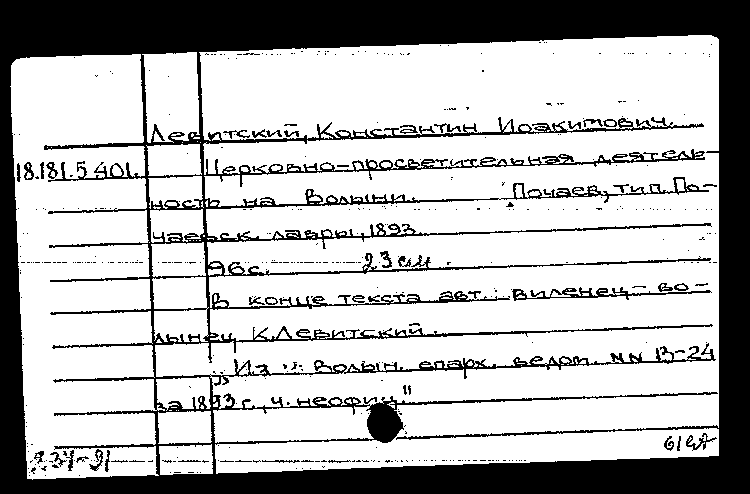 Левитский, Константин Иоакимович.
18.181.5 401. Церковно-просветительная деятель-
ность на Волыни. Почаев, тип. По-
чаевск. лавры, 1893.
96 с. 23 см.
В конце текста авт.: виленец-во-
лынец К. Левитский.
„Из "Волын. епарх. ведом. NN 13-24
за 1893 г., ч. неофиц."
234-91